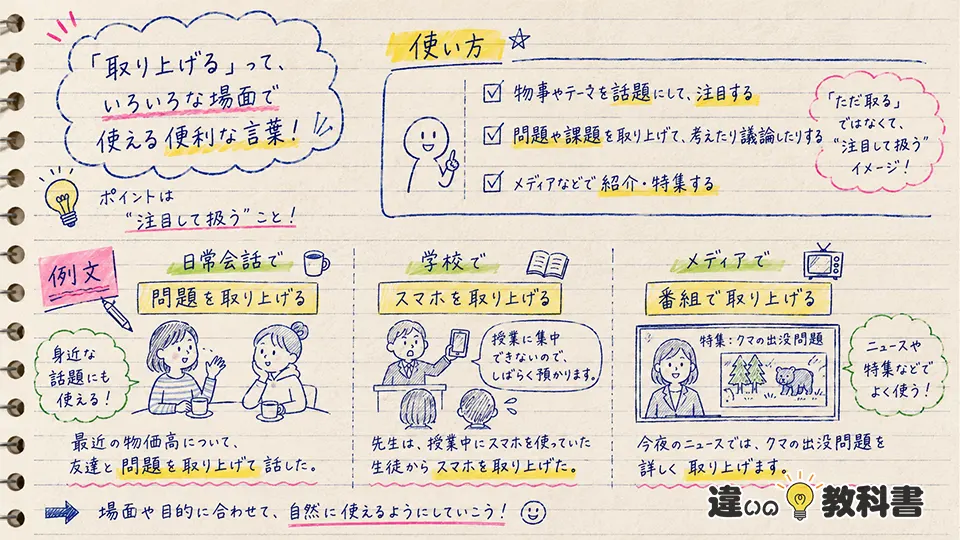 「取り上げる」って、
いろいろな場面で
使える便利な言葉！
ポイントは
“注目して扱う”こと！
使い方
物事やテーマを話題にして、注目する
問題や課題を取り上げて、考えたり議論したりする
メディアなどで紹介・特集する
「ただ取る」
ではなくて、
“注目して扱う”
イメージ！
例文
日常会話で
問題を取り上げる
身近な
話題にも
使える！
最近の物価高について、
友達と問題を取り上げて話した。
学校で
スマホを取り上げる
授業に集中
できないので、
しばらく預かります。
先生は、授業中にスマホを使っていた
生徒からスマホを取り上げた。
メディアで
番組で取り上げる
特集：クマの出没問題
ニュースや
特集などで
よく使う！
今夜のニュースでは、クマの出没問題を
詳しく取り上げます。
場面や目的に合わせて、自然に使えるようにしていこう！
違いの教科書